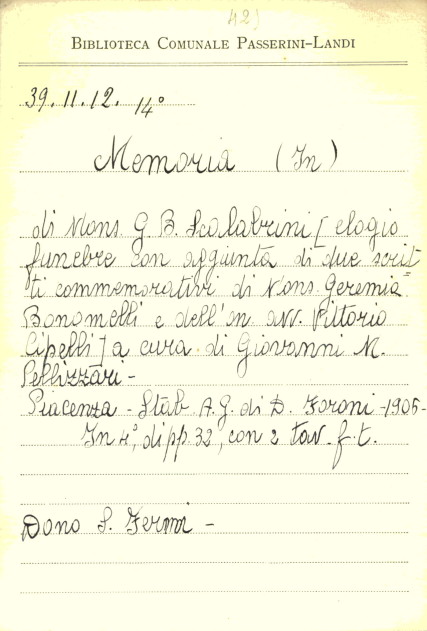 42)
BIBLIOTECA COMUNALE PASSERINI-LANDI
39.11.12. 14°
Memoria (In)
di Mons. G. B. Scalabrini [elogio
funebre con aggiunta di due scrit
ti commemorativi di Mons. Geremia
Bonomelli e dell'on. avv. Vittorio
Cipelli] a cura di Giovanni M.
Pellizzari -
Piacenza - Stab. A. G. di D. Foroni - 1905 -
In 4°, di pp. 32, con 2 tav. f. t.
Dono S. Fermi -